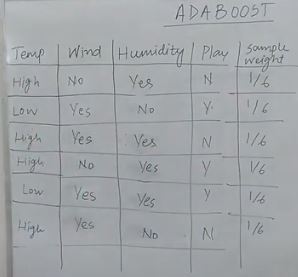 ADABOOST
Temp Wind Humidity Play Sample weight
High No Yes N 1/6
Low Yes No Y 1/6
High Yes Yes N 1/6
High No Yes Y 1/6
Low Yes Yes Y 1/6
High Yes No N 1/6